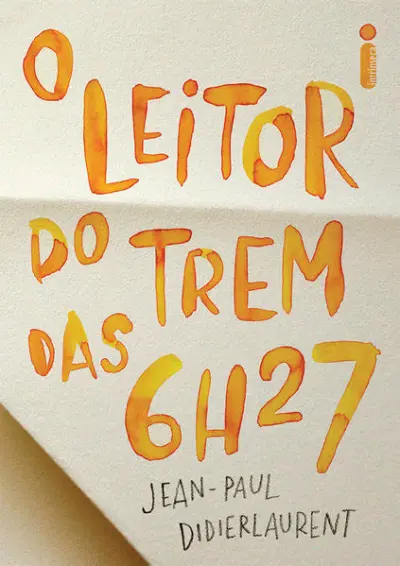 O
LEITOR
DO TREM
DAS 6H27
JEAN-PAUL
DIDIERLAURENT
intrínseca